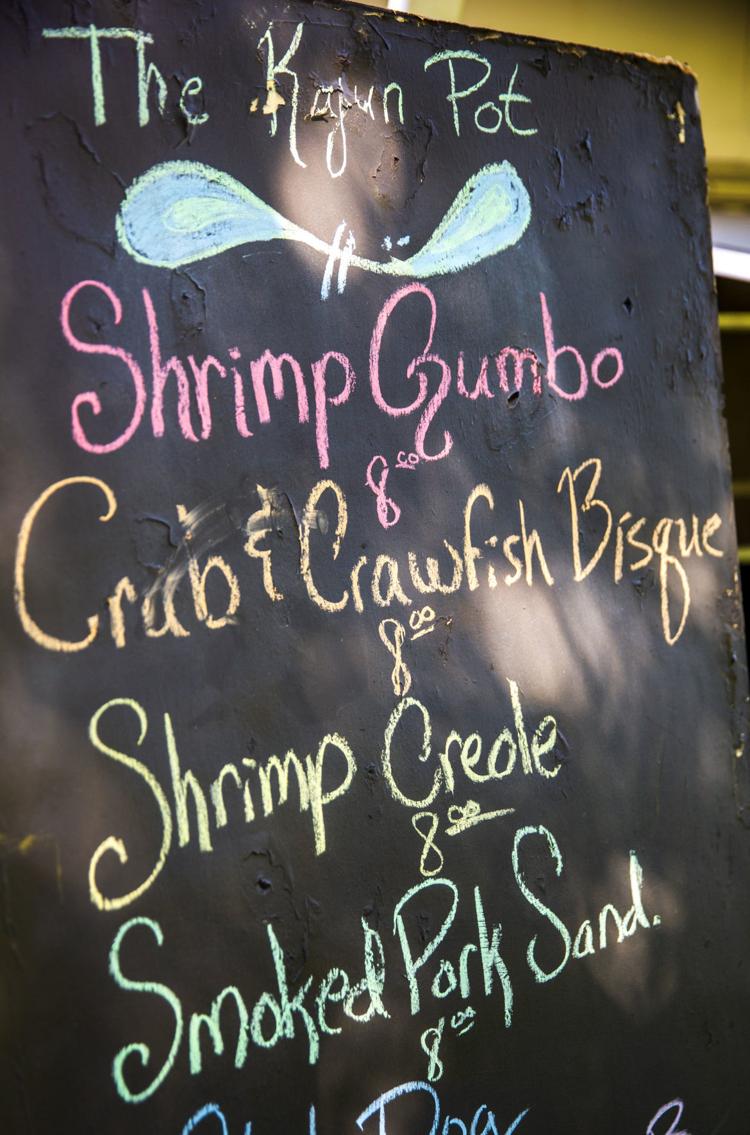 The Kajun Pot
Shrimp Gumbo
8.00
Crab & Crawfish Bisque
8.00
Shrimp Creole
8.00
Smoked Pork Sand.
8.00